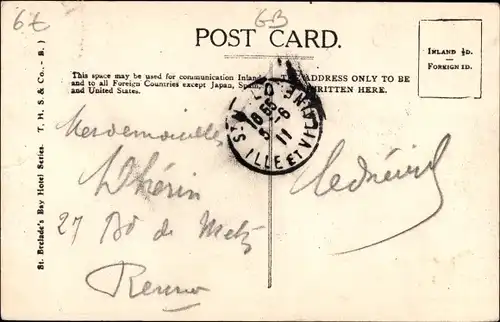 6z
GB
POST CARD.
INLAND ½D.
FOREIGN 1D.
This space may be used for communication Inland
and to all Foreign Countries except Japan, Spain,
and United States.
THE ADDRESS ONLY TO BE
WRITTEN HERE.
ILLE ET VILAINE
18 55
5 -6
11
St. Brelade's Bay Hotel Series. T. H. S. & Co., - B. )
Mesdemoiselles
Lhérin
27 Bd de Metz
Rennes